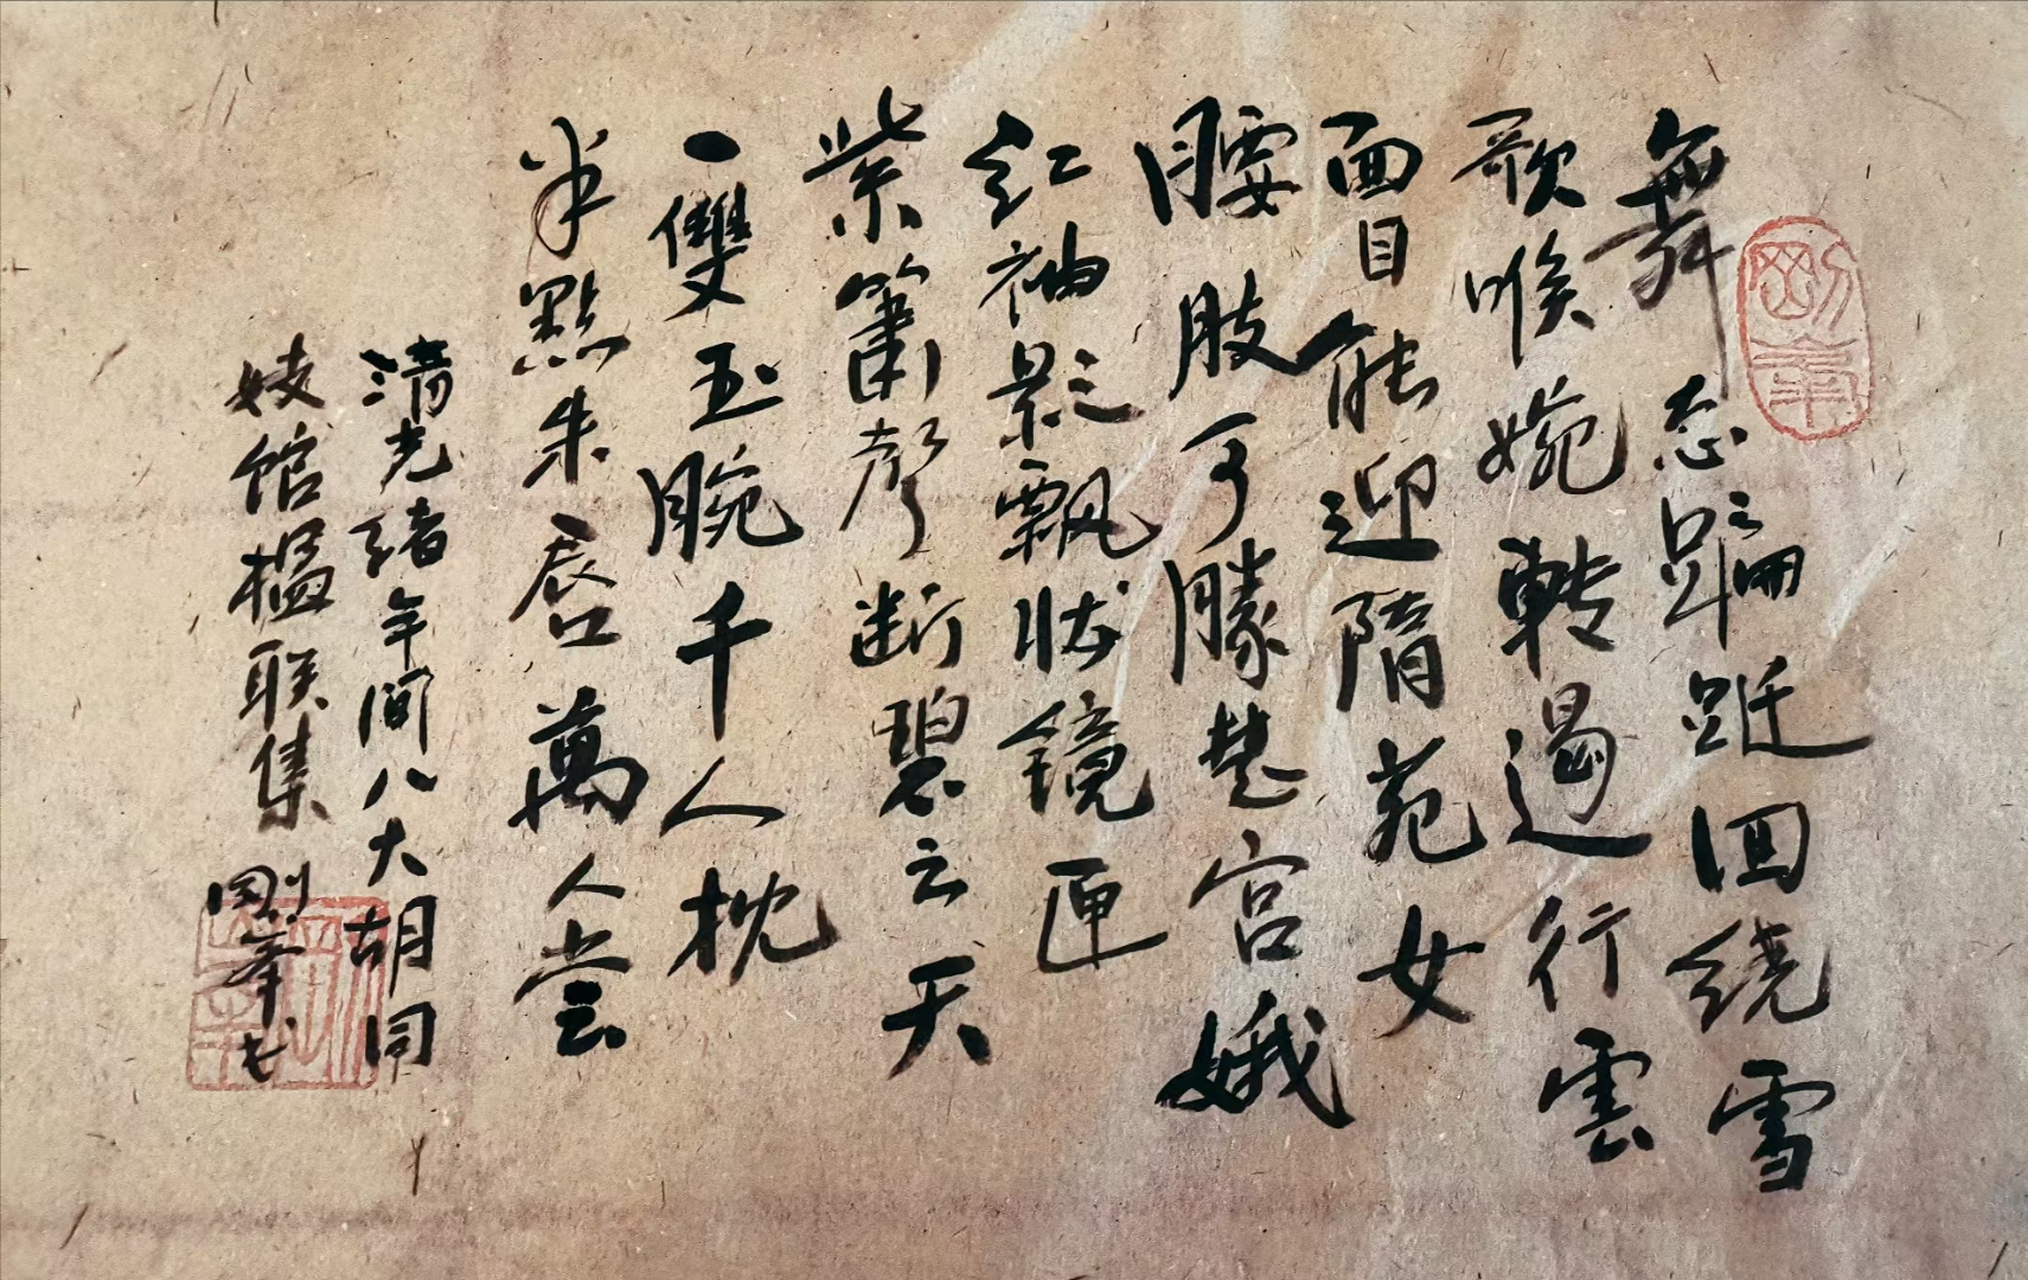 舞态蹁跹回绕雪
歌喉婉转遏行雲
面目能迎隋苑女
腰肢可勝楚宫娥
红袖影飘状镜匣
紫簫聲断碧云天
一雙玉腕千人枕
半點朱唇萬人尝
清光绪年间八大胡同
妓馆楹联集 剛峯